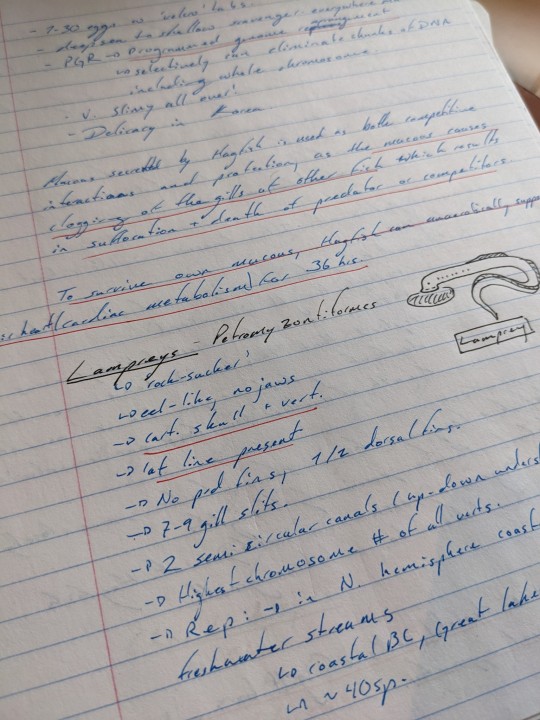 - 7-30 eggs w 'velcro' tabs.
- deepsea to shallow scavenger. everywhere
- PGR → Programmed genome
↳ selectively can eliminate chunks of DNA
including whole chromosome.
- v. slimy all over!
- Delicacy in Korea.
Mucous secreted by Hagfish is used as both competitive
interactions and protection, as the mucous causes
clogging of the gills of other fish which results
in suffocation + death of predator or competitors.
To survive own mucous, Hagfish can anaerobically
heart (cardiac metabolism) for 36 hrs.
Lampreys - Petromyzontiformes
↳ 'rock-sucker'
↳ eel-like, no jaws
→ cart. skull + vert.
→ lat line present
→ No prd fins, 1/2 dorsal fins.
→ 7-9 gill slits.
→ 2 semi circular canals (up-down
→ Highest chromosome # of all verts.
→ Rep: → in N. hemisphere
freshwater streams
↳ coastal BC, Great
↳ ~ 40sp.
Lamprey